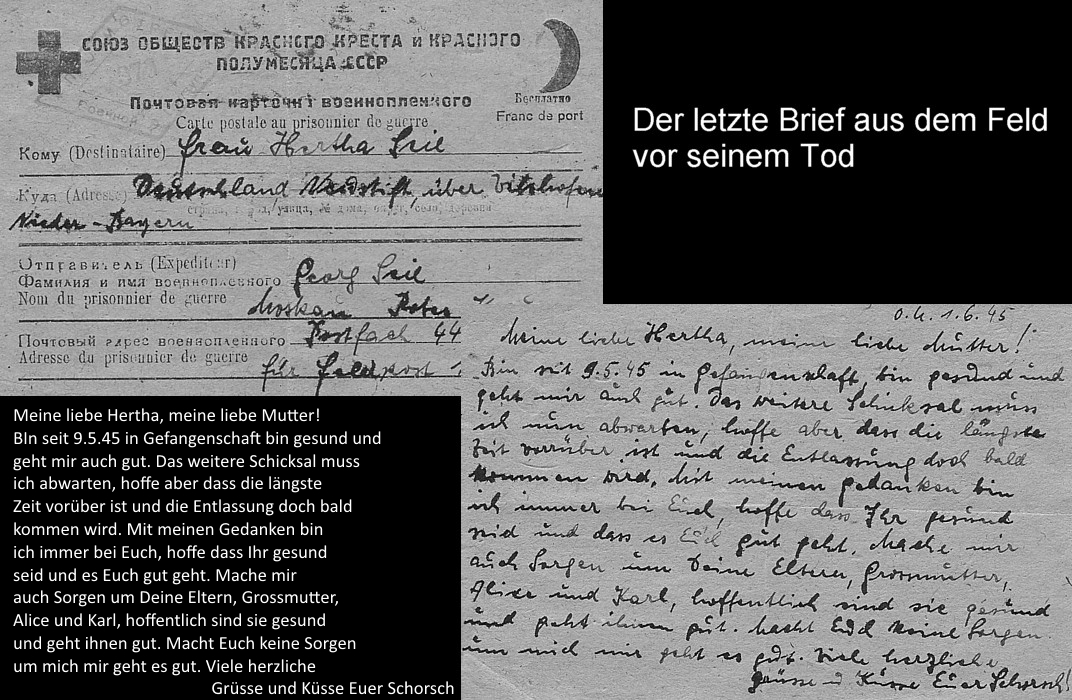 СОЮЗ ОБЩЕСТВ КРАСНОГО КРЕСТА и КРАСНОГО
ПОЛУМЕСЯЦА СССР
Почтовая карточка военнопленного
Carte postale au prisonnier de guerre
Бесплатно
Franc de port
Кому (Destinataire) Frau Hertha Seil
Куда (Adresse) Deutschland, Neustift, über Vilshofen
Nieder-Bayern
Отправитель (Expediteur)
Фамилия и имя военнопленного Georg Seil
Nom du prisonnier de guerre
Moskau Rotes
Почтовый адрес военнопленного Postfach 44
Adresse du prisonnier de guerre
für Feldpost
Der letzte Brief aus dem Feld
vor seinem Tod
O.U. 1.6.45
Meine liebe Hertha, meine liebe Mutter!
Bin seit 9.5.45 in Gefangenschaft, bin gesund und
geht mir auch gut. Das weitere Schicksal muss
ich nun abwarten, hoffe aber dass die längste
Zeit vorrüber ist und die Entlassung doch bald
kommen wird. Mit meinen Gedanken bin
ich immer bei Euch, hoffe dass Ihr gesund
seid und dass es Euch gut geht. Mache mir
auch Sorgen um Deine Eltern, Grossmutter,
Alice und Karl, hoffentlich sind sie gesund
und geht ihnen gut. Macht Euch keine Sorgen
um mich mir geht es gut. Viele herzliche
Grüsse u Küsse Euer Schorsch!
Meine liebe Hertha, meine liebe Mutter!
BIn seit 9.5.45 in Gefangenschaft bin gesund und
geht mir auch gut. Das weitere Schicksal muss
ich abwarten, hoffe aber dass die längste
Zeit vorüber ist und die Entlassung doch bald
kommen wird. Mit meinen Gedanken bin
ich immer bei Euch, hoffe dass Ihr gesund
seid und es Euch gut geht. Mache mir
auch Sorgen um Deine Eltern, Grossmutter,
Alice und Karl, hoffentlich sind sie gesund
und geht ihnen gut. Macht Euch keine Sorgen
um mich mir geht es gut. Viele herzliche
Grüsse und Küsse Euer Schorsch